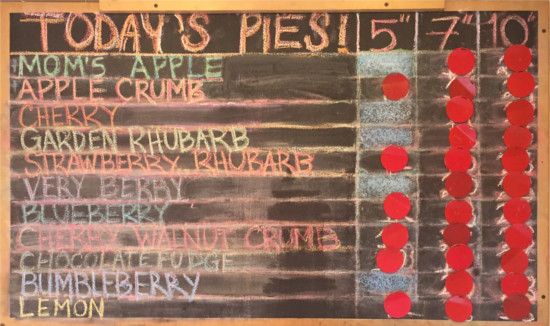 TODAY'S PIES! 5" 7" 10"
MOM'S APPLE
APPLE CRUMB
CHERRY
GARDEN RHUBARB
STRAWBERRY RHUBARB
VERY BERRY
BLUEBERRY
CHERRY WALNUT CRUMB
CHOCOLATE FUDGE
BUMBLEBERRY
LEMON